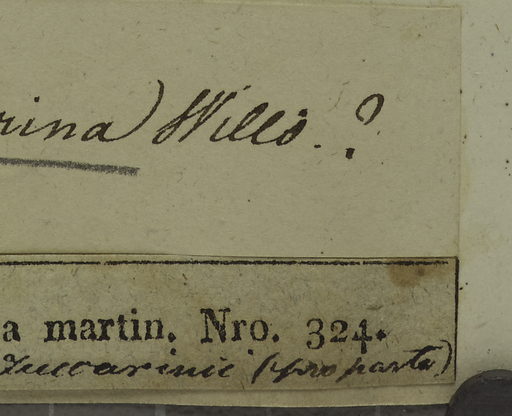 rina) Wills. ?
a martin. Nro. 324.
Zuccarinii (pro parte)